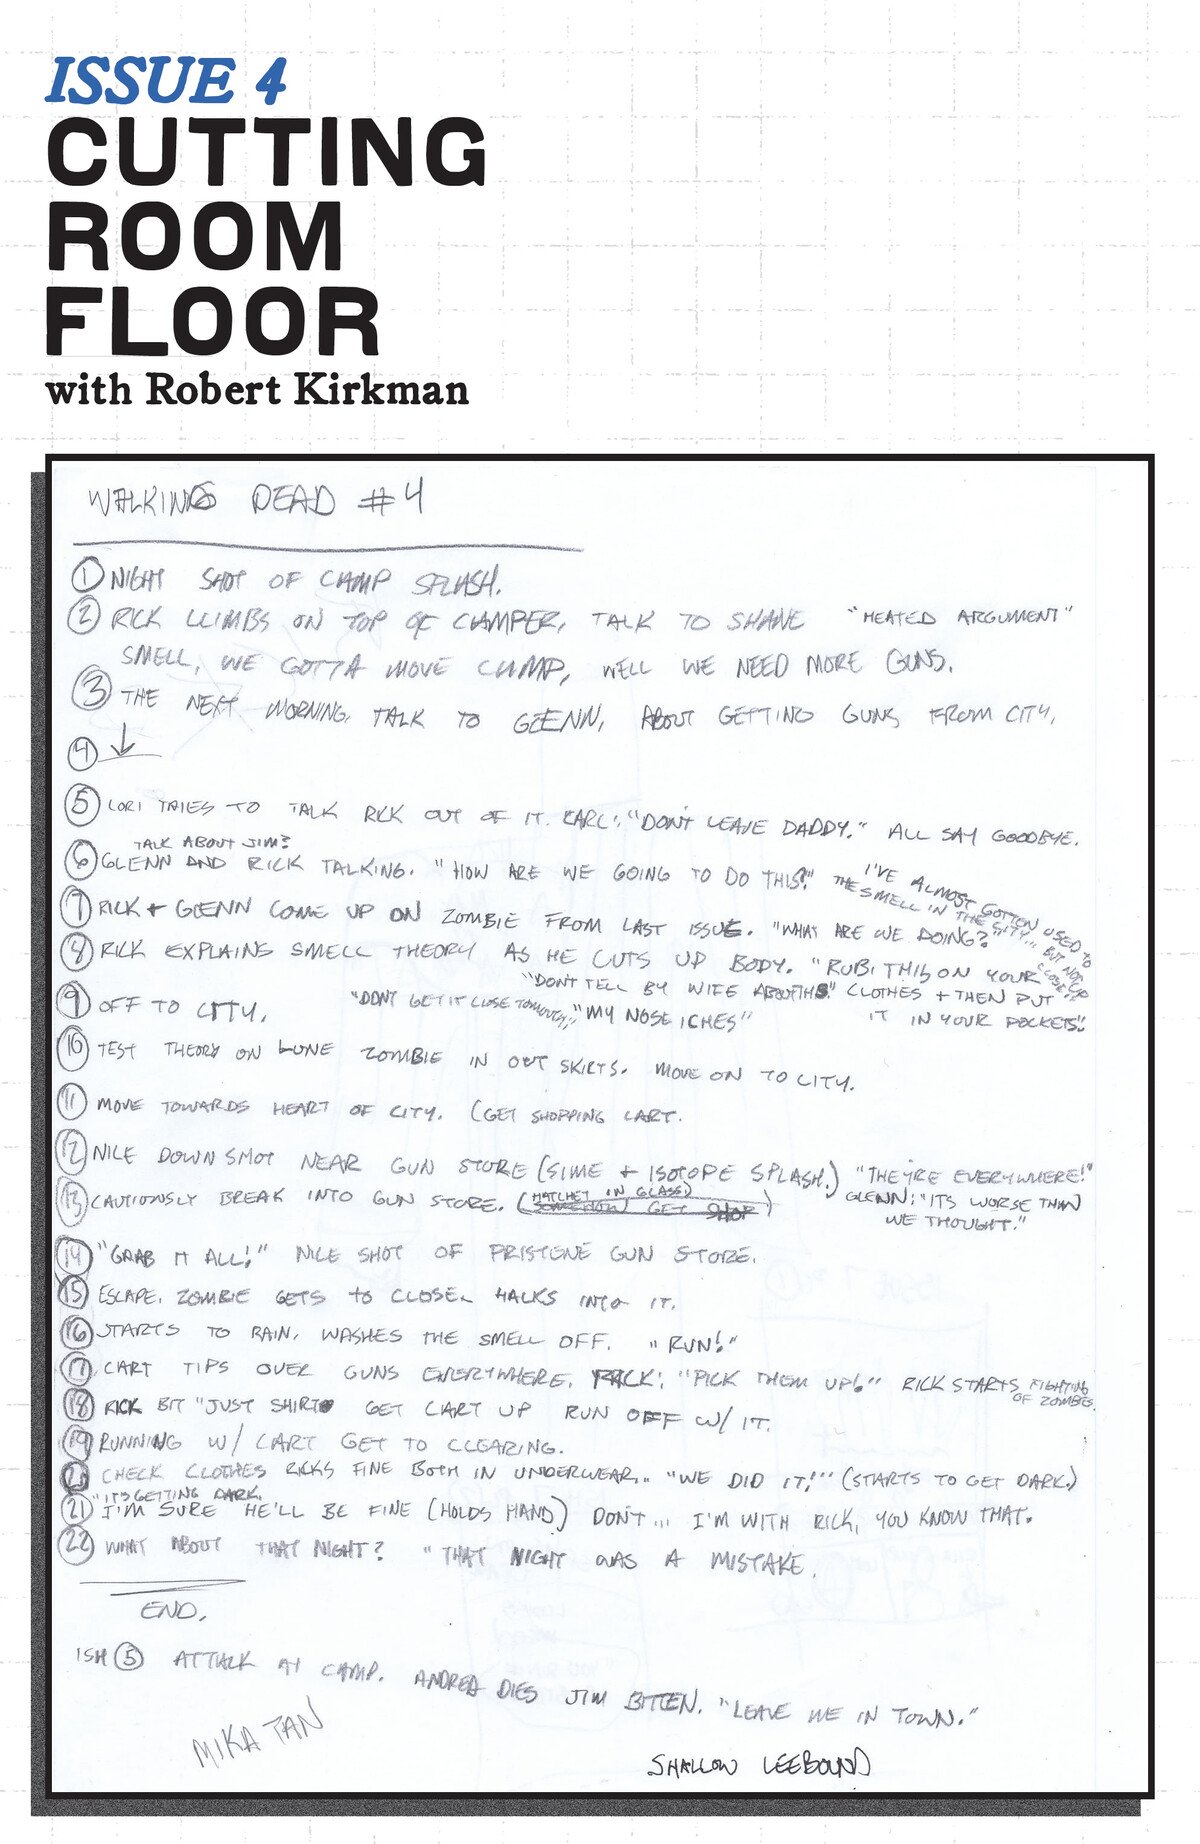 ISSUE 4
CUTTING
ROOM
FLOOR
with Robert Kirkman
WALKING DEAD #4
① NIGHT SHOT OF CAMP SPLASH.
② RICK CLIMBS ON TOP OF CAMPER, TALK TO SHANE "HEATED ARGUMENT"
SMELL, WE GOTTA MOVE CAMP, WELL WE NEED MORE GUNS.
③ THE NEXT MORNING, TALK TO GLENN, ABOUT GETTING GUNS FROM CITY,
④ ↓
⑤ LORI TRIES TO TALK RICK OUT OF IT. KARL: "DON'T LEAVE DADDY." ALL SAY GOODBYE.
TALK ABOUT JIM?
⑥ GLENN AND RICK TALKING. "HOW ARE WE GOING TO DO THIS?" I'VE ALMOST GOTTEN USED TO THE SMELL IN THE CITY... BUT NOT UP CLOSE!!
⑦ RICK + GLENN COME UP ON ZOMBIE FROM LAST ISSUE. "WHAT ARE WE DOING?"
⑧ RICK EXPLAINS SMELL THEORY AS HE CUTS UP BODY. "RUB THIS ON YOUR CLOTHES + THEN PUT IT IN YOUR POCKETS!"
"DON'T TELL BY WIFE ABOUT THIS"
⑨ OFF TO CITY. "DON'T GET IT CLOSE TO MOUTH," "MY NOSE ICHES"
⑩ TEST THEORY ON LONE ZOMBIE IN OUT SKIRTS. MOVE ON TO CITY.
⑪ MOVE TOWARDS HEART OF CITY. (GET SHOPPING CART.
⑫ NICE DOWNSHOT NEAR GUN STORE (SIME + ISOTOPE SPLASH.) "THEY'RE EVERYWHERE!"
GLENN: "ITS WORSE THAN WE THOUGHT."
⑬ CAUTIOUSLY BREAK INTO GUN STORE. (HATCHET IN GLASS)
⑭ "GRAB IT ALL!" NICE SHOT OF PRISTENE GUN STORE.
⑮ ESCAPE. ZOMBIE GETS TO CLOSE. HACKS INTO IT.
⑯ STARTS TO RAIN. WASHES THE SMELL OFF. "RUN!"
⑰ CART TIPS OVER GUNS EVERYWHERE. RICK: "PICK THEM UP!" RICK STARTS FIGHTING OF ZOMBIES.
⑱ RICK BIT "JUST SHIRT" GET CART UP RUN OFF W/ IT.
⑲ RUNNING W/ CART GET TO CLEARING.
⑳ CHECK CLOTHES RICKS FINE BOTH IN UNDERWEAR.. "WE DID IT!" (STARTS TO GET DARK.)
"IT'S GETTING DARK.
㉑ I'M SURE HE'LL BE FINE (HOLDS HAND) DON'T... I'M WITH RICK, YOU KNOW THAT.
㉒ WHAT ABOUT THAT NIGHT? "THAT NIGHT WAS A MISTAKE.
END.
ISH ⑤ ATTACK AT CAMP. ANDREA DIES JIM BITTEN. "LEAVE ME IN TOWN."
MIKA TAN
SHALLOW LEEBOUND